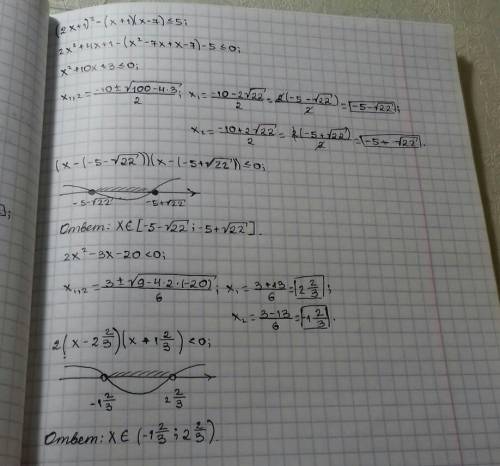 (2x+1)² - (x+1)(x-7) ≤ 5;
2x²+4x+1 - (x²-7x+x-7) - 5 ≤ 0;
x²+10x+3 ≤ 0;
x₁,₂ = (-10±√(100-4·3))/2; x₁ = (-10-2√22)/2 = 2(-5-√22)/2 = -5-√22;
x₂ = (-10+2√22)/2 = 2(-5+√22)/2 = -5+√22.
(x-(-5-√22))(x-(-5+√22)) ≤ 0;
-5-√22 -5+√22
Ответ: X∈[-5-√22; -5+√22].
2x²-3x-20<0;
x₁,₂ = (3±√(9-4·2·(-20)))/6; x₁ = (3+13)/6 = 2 2/3;
x₂ = (3-13)/6 = -1 2/3.
2(x-2 2/3)(x+1 2/3)<0;
-1 2/3 2 2/3
Ответ: X∈(-1 2/3; 2 2/3).